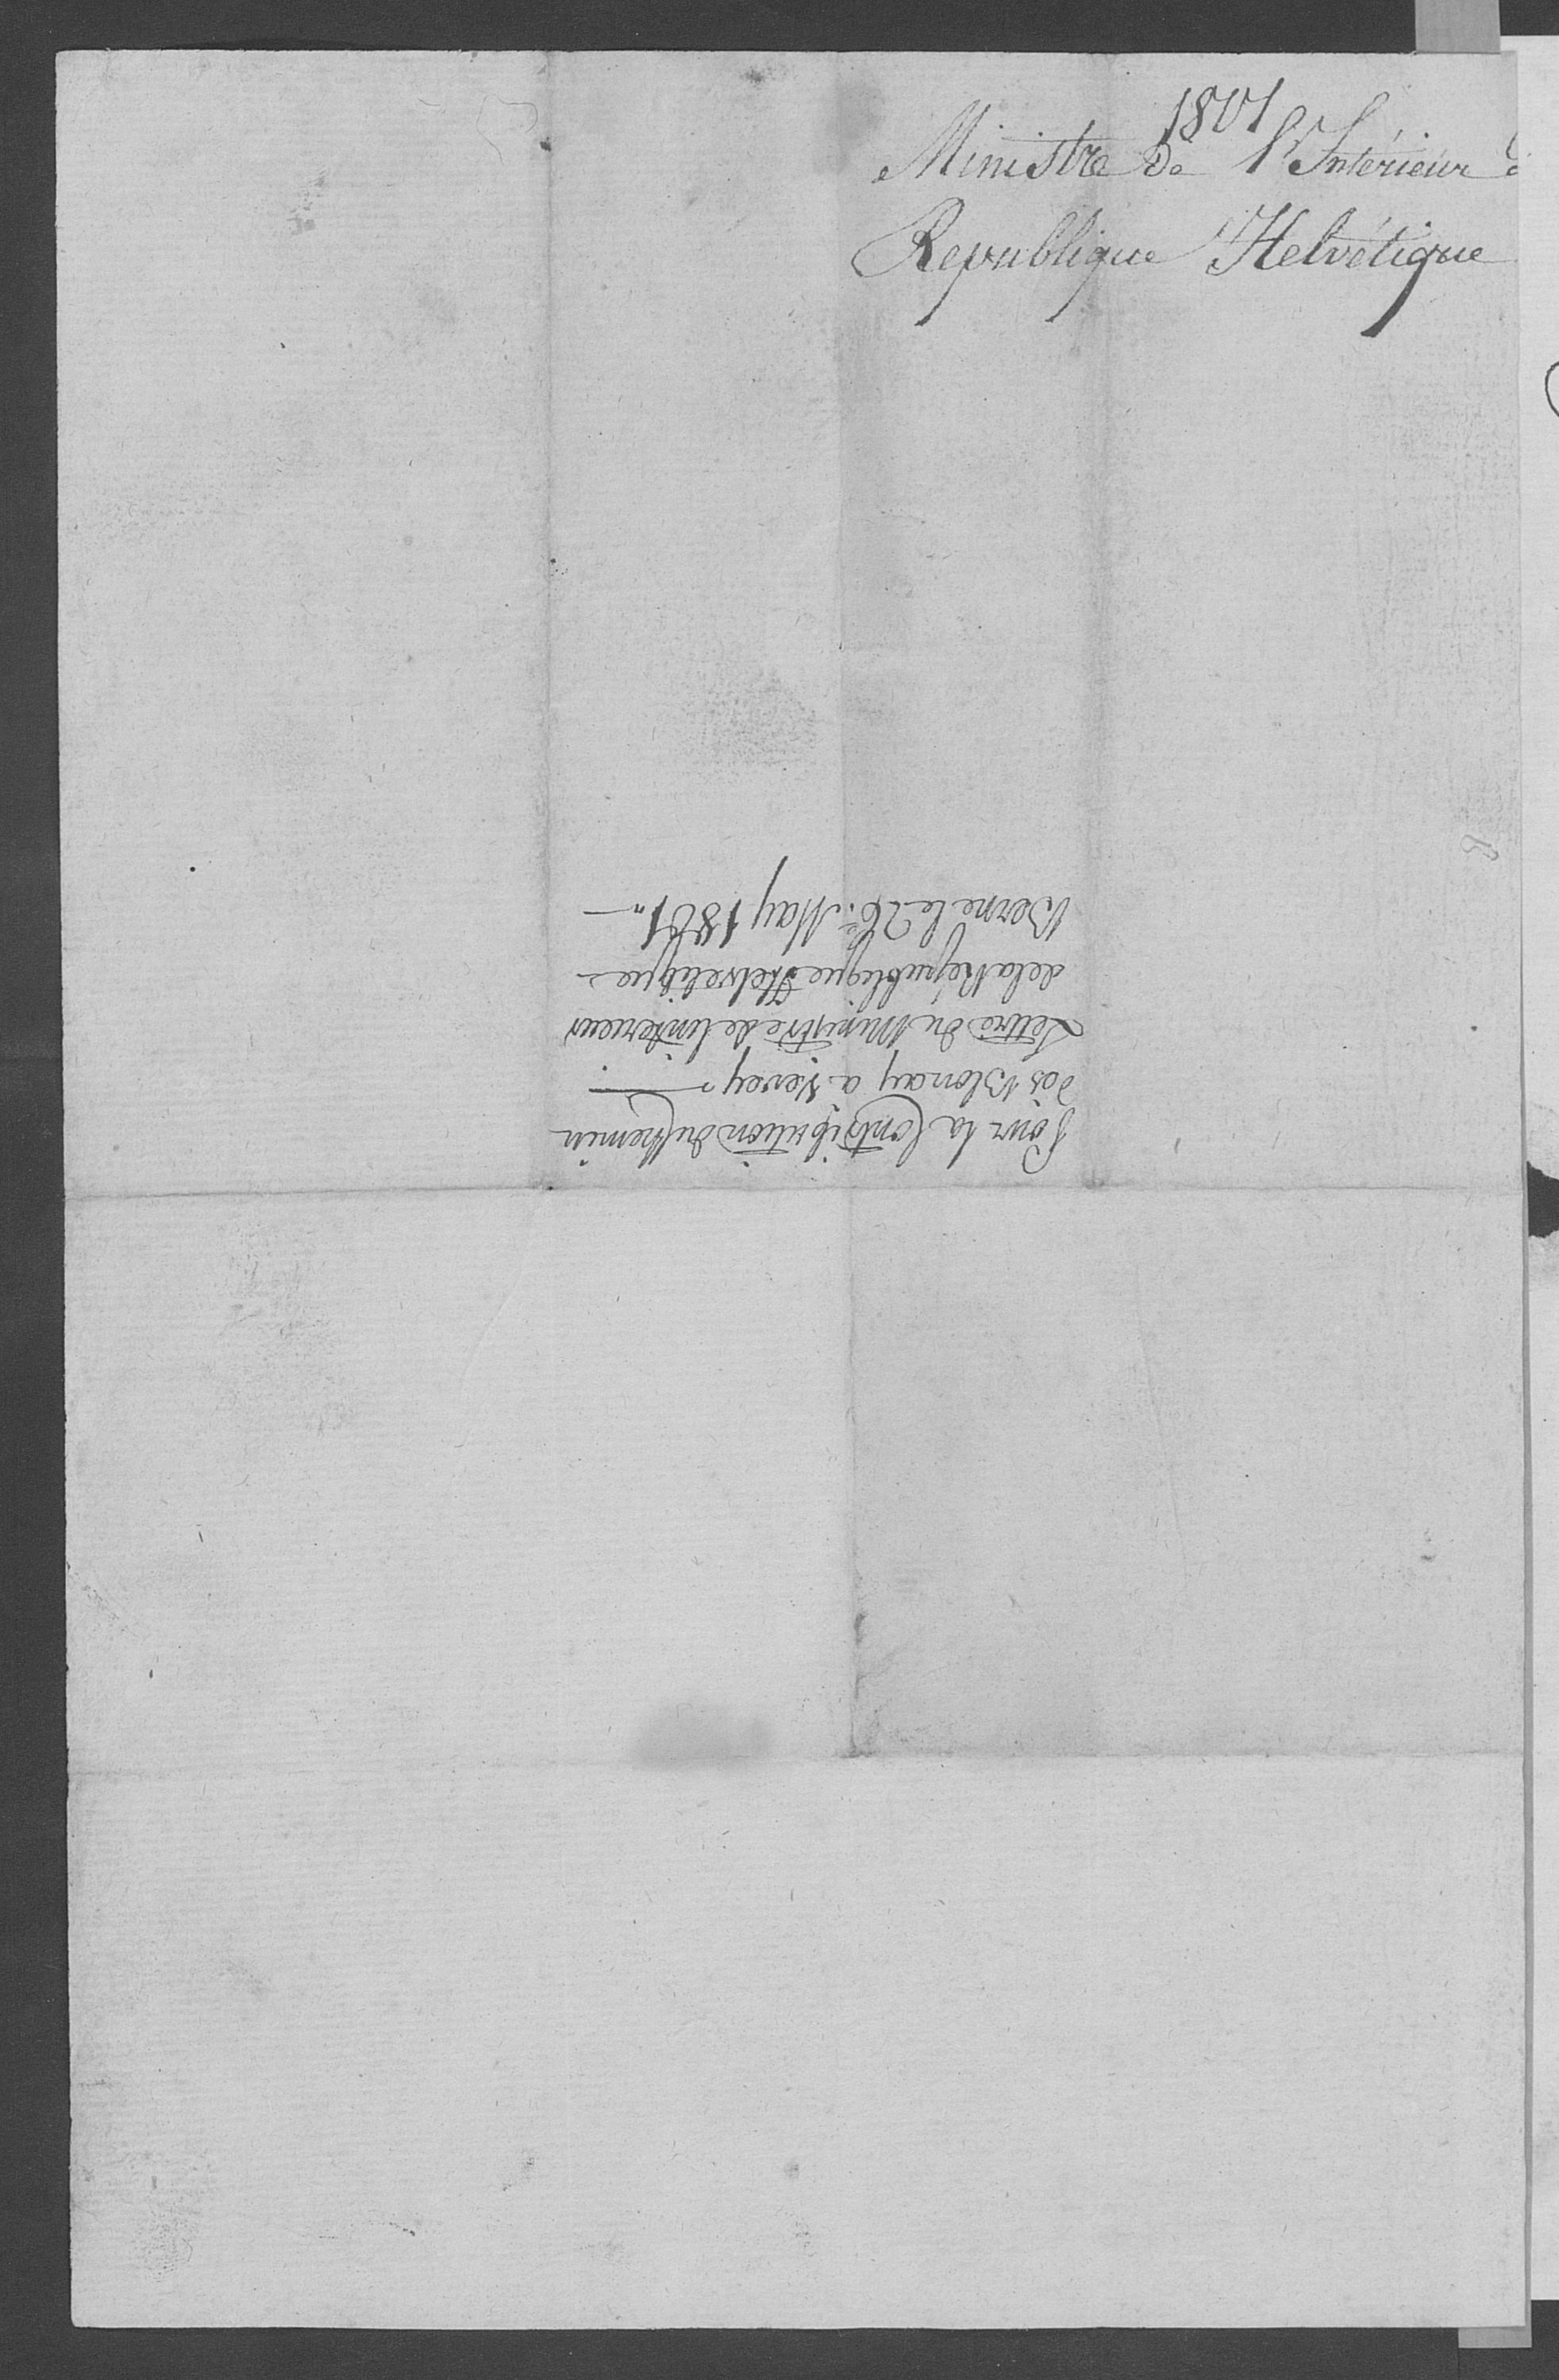 1801
Ministre de l'Intérieur d
Republique Helvétique
Pour la Contribution du Chemin
des Blonay a Vevey
Lettre du Ministre de linterieur
de la Republique Helvetique
Berne le 26e. May 1801"